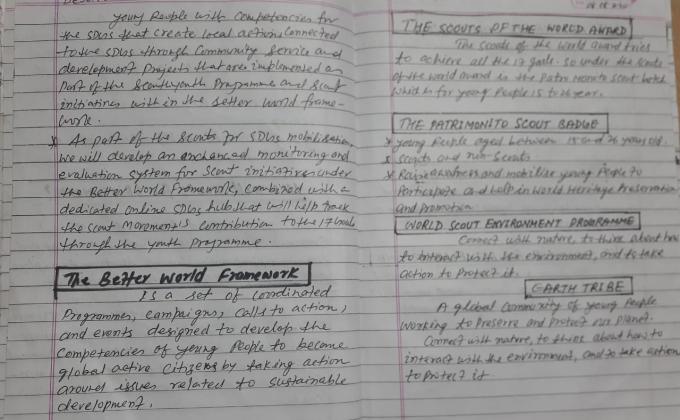 young People with competencies for
the SDGs that create local actions connected
to the SDGs through Community Service and
development Projects that are implemented as
part of the Scouts youth Programme and Scout
initiatives with in the Better World frame-
work.
* As part of the Scouts for SDGs mobilisation,
we will develop an enhanced monitoring and
evaluation system for Scout initiatives under
the Better World Framework, combined with a
dedicated online SDGs hub that will help track
the Scout Movement's contribution to the 17 Goals
through the youth Programme.
The Better World Framework
Is a set of coordinated
Programmes, campaigns, calls to action,
and events designed to develop the
competencies of young People to become
global active citizens by taking action
around issues related to sustainable
development.
THE SCOUTS OF THE WORLD AWARD
The Scouts of the World award tries
to achieve all the 17 goals. so under the Scouts
of the world award is the Patrimonito Scout
which is for young People is to 26 year.
THE PATRIMONITO SCOUT BADGE
* young People aged between 15 and 26 years old.
* Scouts and non-Scouts.
* Raise awarness and mobilise young People to
Participate and help in World Heritage Preservation
and Promotion
WORLD SCOUT ENVIRONMENT PROGRAMME
Connect with nature, to think about how
to interact with the environment, and to take
action to Protect it.
EARTH TRIBE
A global Community of young People
working to Preserve and Protect our Planet.
Connect with nature, to think about how to
interact with the environment, and to take action
to Protect it